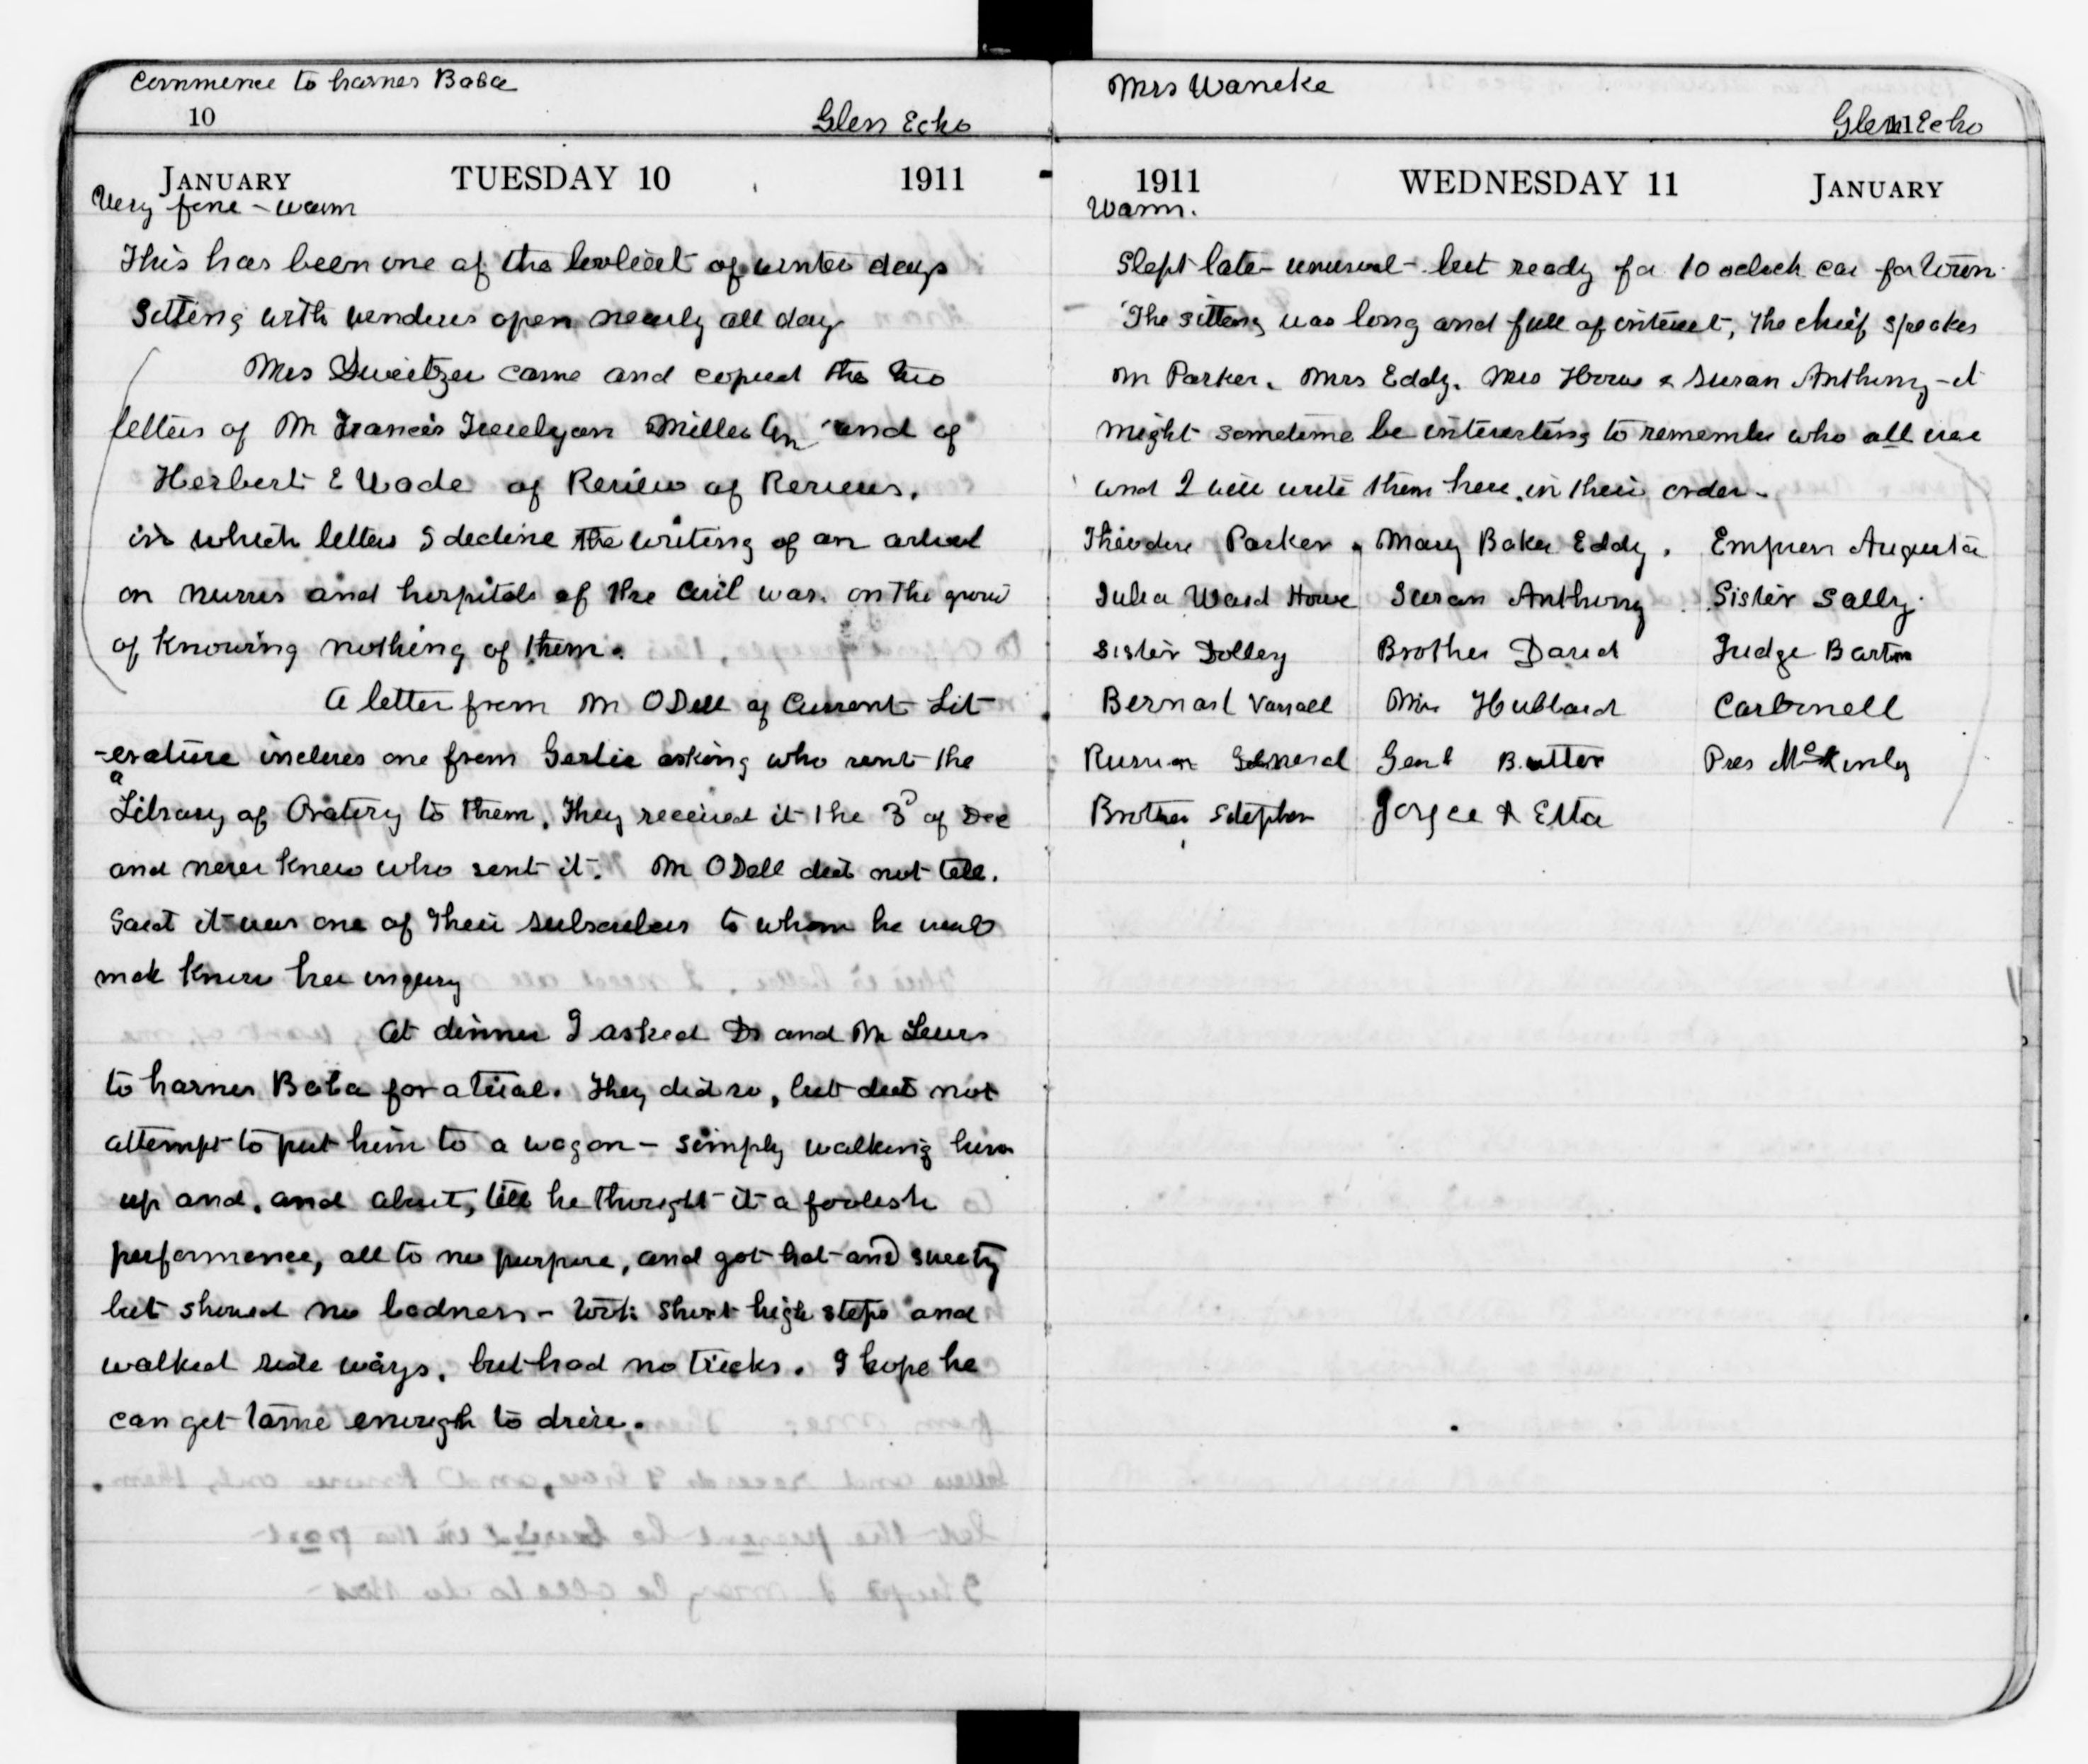 Commence to harnes Baba
10
Glen Echo
JANUARY TUESDAY 10 1911
Very fine - warm
This has been one of the lovliest of winter days
Sitting with windows open nearly all day
Mrs Sweitzer came and copied the two
letters of Mr Francis Trevelyan Miller and of
Herbert E Wade of Review of Reviews.
in which letters I decline the writing of an articl
on nurses and hospitals of the Civil war. on the groud
of knowing nothing of them.
A letter from Mr ODell of Current Lit-
-erature incloses one from Gertie asking who sent the
a
Library of Oratory to them. They received it the 3d of Dec
and never knew who sent it. Mr ODell did not tell.
Said it was one of their subscribers to whom he would
mak know her inquiry
At dinner I asked Dr and Mr Lewis
to harnes Baba for a trial. They did so, but did not
attempt to put him to a wagon - simply walking him
up and, and about, till he thought it a foolish
performance, all to no purpose, and got hot and sweety
but showed no badness - took short high steps and
walked side ways, but had no tricks. I hope he
can get tame enough to drive.
Mrs Waneke
Glen Echo
11
1911 WEDNESDAY 11 JANUARY
Warm.
Slept late - unusual - but ready for 10 oclock car for town.
The sitting was long and full of interest, the chief speakers
Mr Parker. Mrs Eddy. Mrs Howe & Susan Anthony - it
might sometime be interesting to remember who all were
and I will write them here in their order -
Theodore Parker. Mary Baker Eddy. Empress Augusta
Julia Ward Howe Susan Anthony Sister Sally.
Sister Dolley Brother David Judge Barton
Bernard Vassall Mrs Hubbard Carbonell
Russian General Genl Butler Pres McKinley
Brother Stephen Joyce & Etta